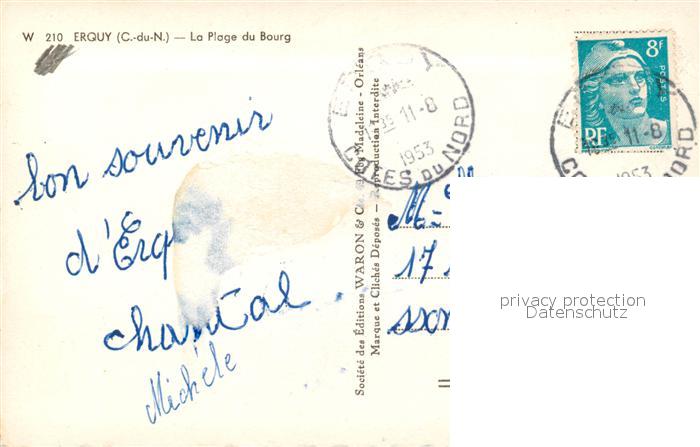 W 210 ERQUY (C.-du-N.) — La Plage du Bourg
bon souvenir
d'Erq
chantal
Michèle
Société des Éditions WARON & C
Madeleine - Orléans
Marque et Clichés Déposés — Reproduction Interdite
11-8
1953
CÔTES DU NORD
8f
POSTES
RF
11-8
1953
NORD
M
17
privacy protection
Datenschutz